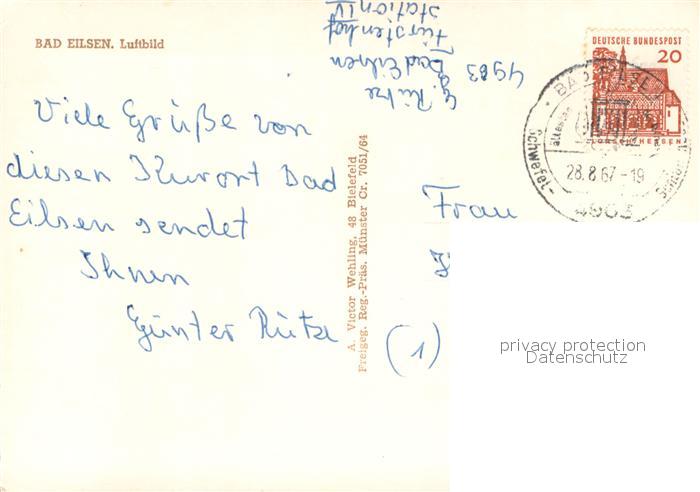 BAD EILSEN. Luftbild
Viele Grüße von
diesen Kurort Bad
Eilsen sendet
Ihnen
Günter Rütze
4963
Bad Eilsen
Fürstenhof
Station IV
G. Rütze
A. Victor Wehling, 48 Bielefeld
Freigeg. Reg.-Präs. Münster Cr. 7051/64
DEUTSCHE BUNDESPOST
20
BAD EILSEN
28.8.67-19
Schwefel-
Schlamm
Frau
(1)
privacy protection
Datenschutz